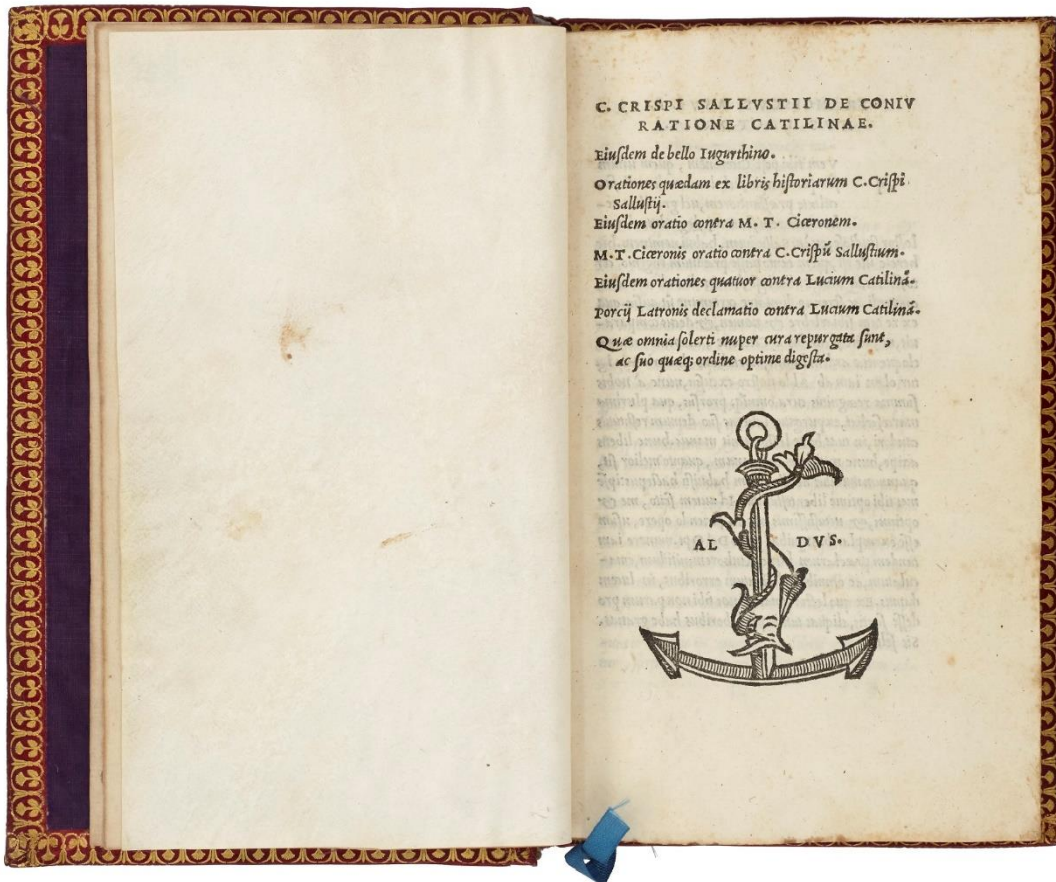 C. CRISPI SALLVSTII DE CONIV
RATIONE CATILINAE.
Eiuſdem de bello Iugurthino.
Orationes quædam ex libris hiſtoriarum C. Criſpi
Salluſtij.
Eiuſdem oratio contra M. T. Ciceronem.
M. T. Ciceronis oratio contra C. Criſpū Salluſtium.
Eiuſdem orationes quatuor contra Lucium Catilinā.
Porcij Latronis declamatio contra Lucium Catilinā.
Quæ omnia ſolerti nuper cura repurgata ſunt,
ac ſuo quæq; ordine optime digeſta.
AL DVS.